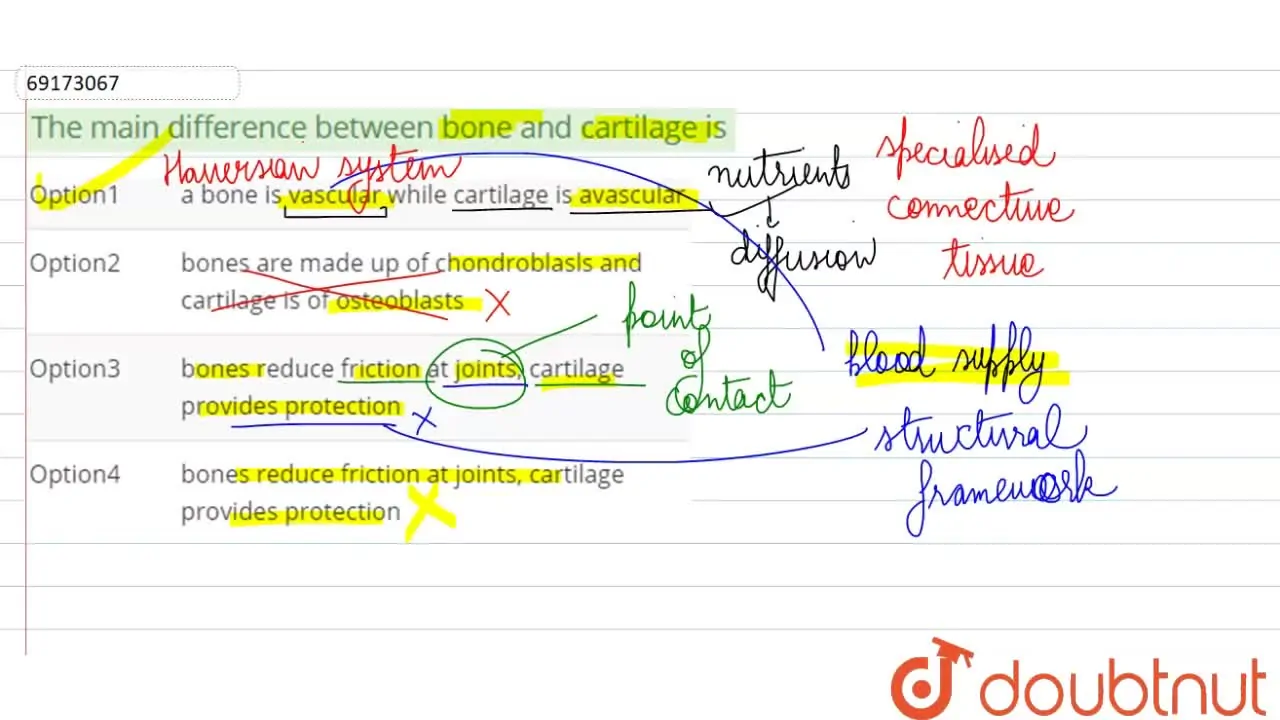 69173067
The main difference between bone and cartilage is
Haversian system
nutrients
specialised
connective
tissue
Option1 a bone is vascular while cartilage is avascular
diffusion
Option2 bones are made up of chondroblasls and
cartilage is of osteoblasts X
point
of
contact
blood supply
Option3 bones reduce friction at joints, cartilage
provides protection X
structural
framework
Option4 bones reduce friction at joints, cartilage
provides protection X
doubtnut